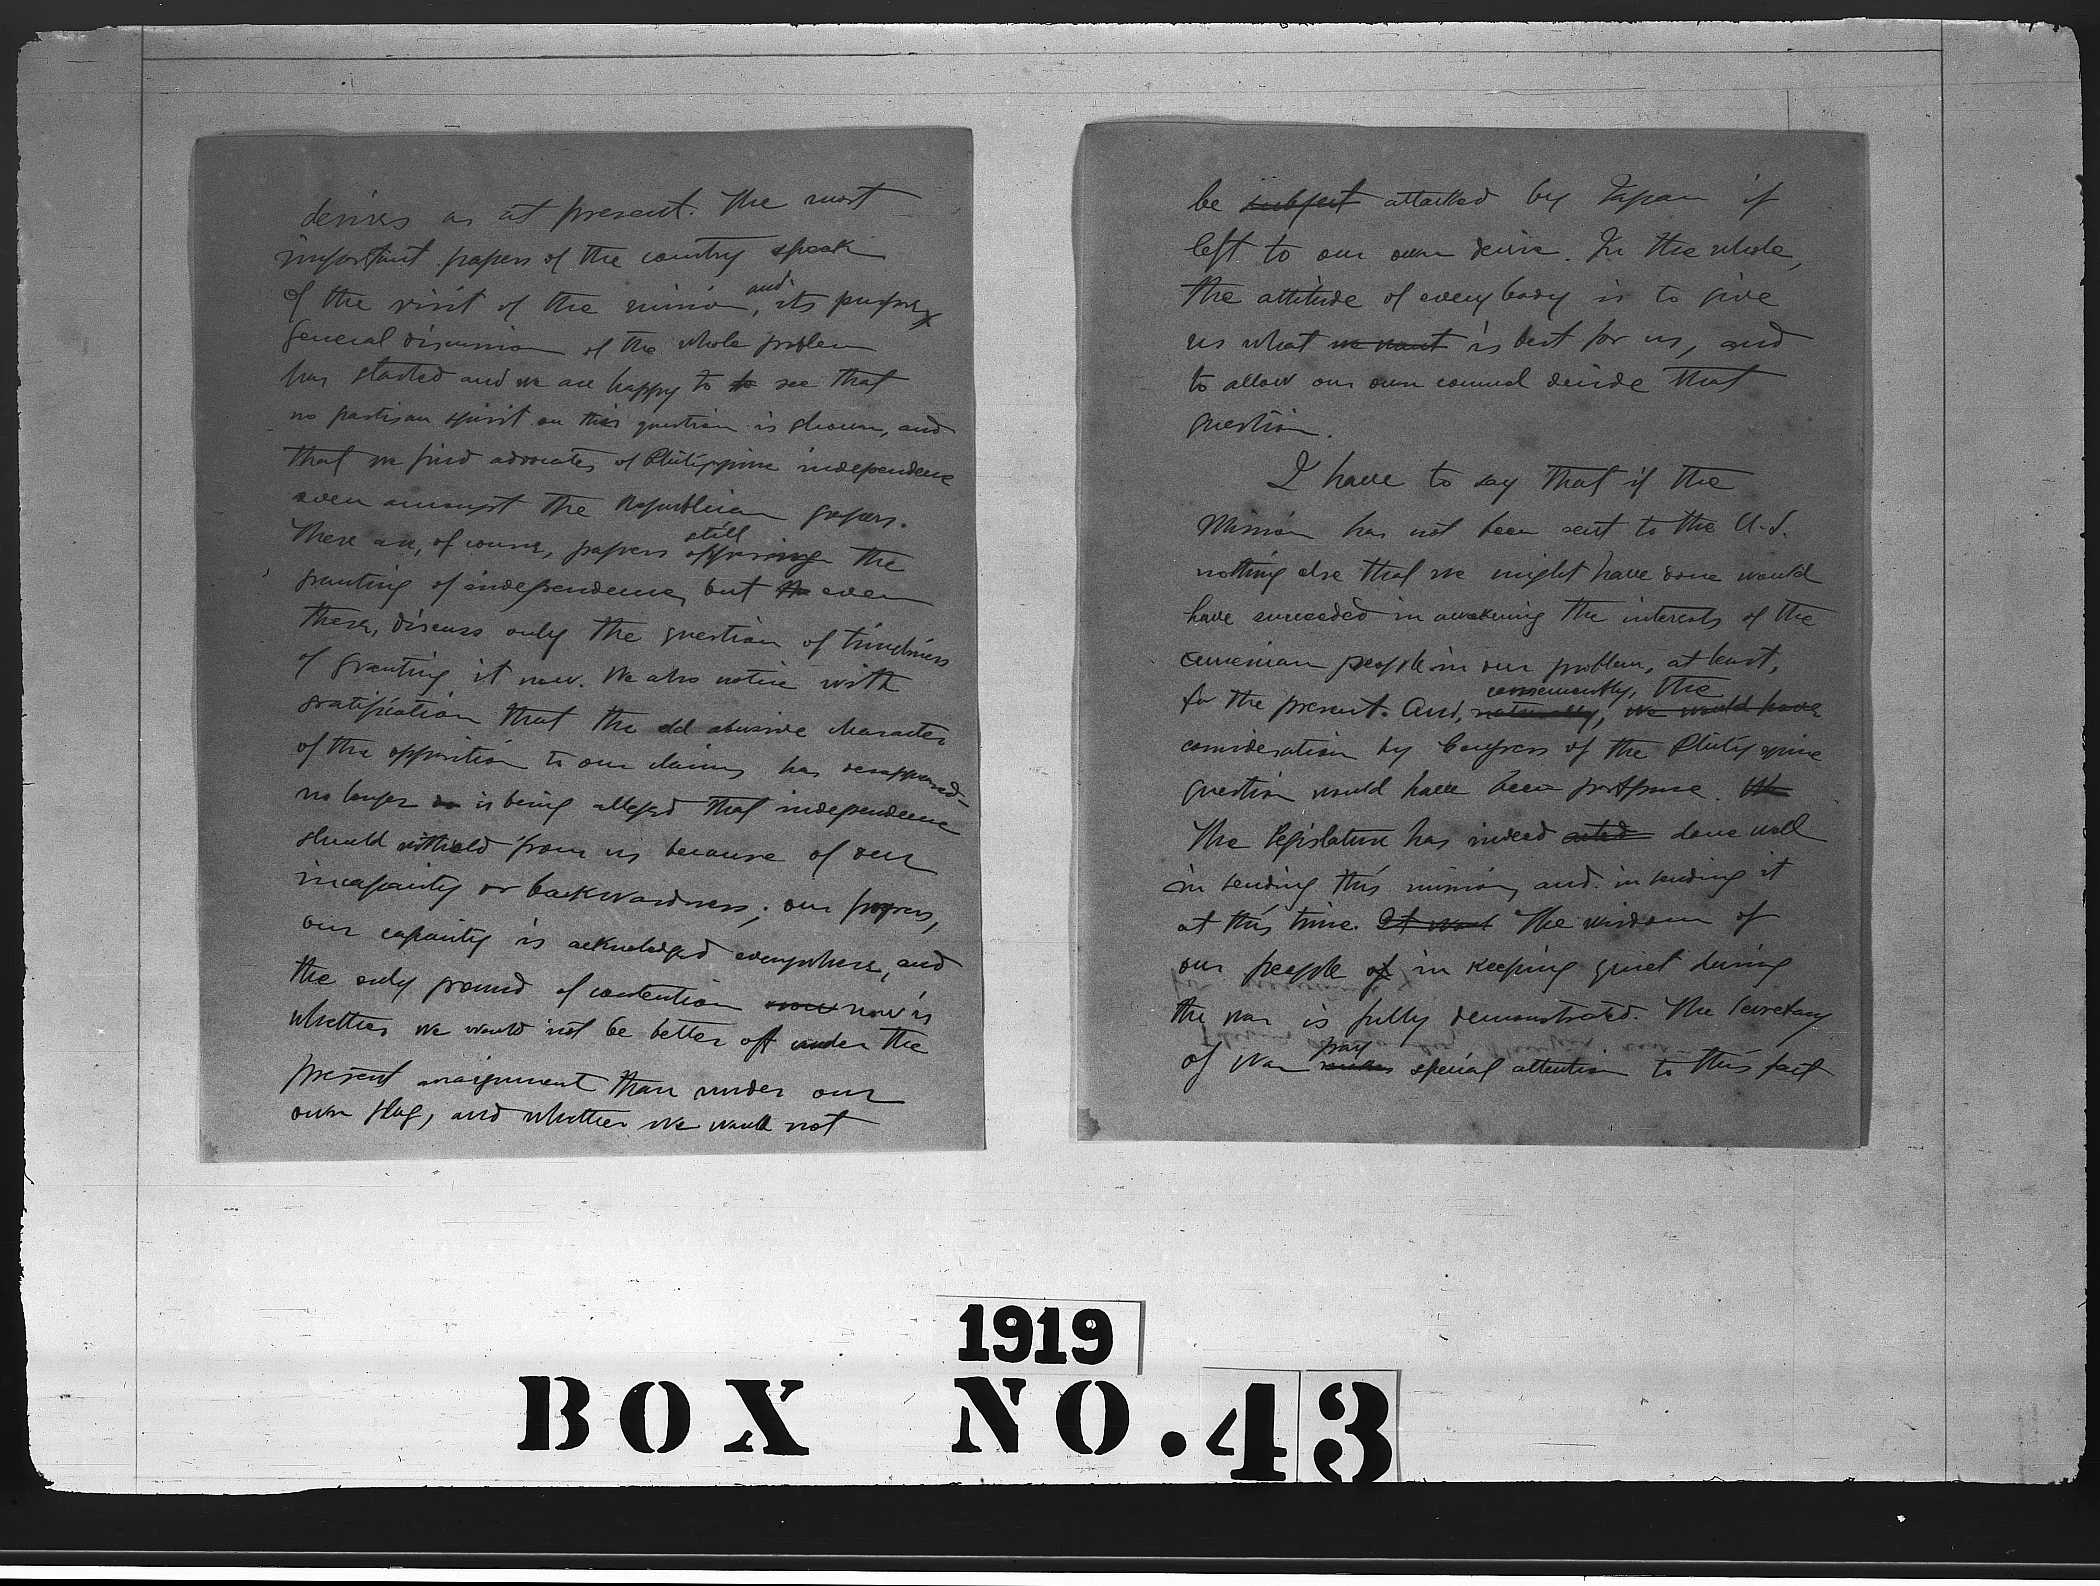 desires as at present. The most
important papers of the country speak
of the visit of the mission, and its purpose
general discussion of the whole problem
has started and we are happy to to see that
no partisan spirit on this question is shown, and
that we find advocates of Philippine independence
even amongst the Republican papers.
There are, of course, papers still opposing the
granting of independence, but the even
these, discuss only the question of timeliness
of granting it now. We also notice with
gratification that the old abusive character
of the opposition to our claims has desappeared-
no longer is being alleged that independence
should withheld from us because of our
incapacity or backwardness; our progress,
our capacity is acknoledged everywhere, and
the only ground of contention now now is
whether we would not be better off under the
present arraignment than under our
own flag, and whether we would not
be subject attacked by Japan if
left to our own desire. In the whole,
the attitude of everybody is to give
us what we want is best for us, and
to allow our own counsel decide that
question.
I have to say that if the
Mission has not been sent to the U.S.
nothing else that we might have done would
have succeeded in awakening the interests of the
american people in our problem, at least,
for the present. And, naturally, consecuently, the we would have
consideration by Congress of the Philippine
question would have been postpone. We
The Legislature has indeed acted done well
in sending this mission, and in sending it
at this time. It was The wisdom of
our people of in keeping quiet during
the war is fully demonstrated. The Secretary
of War pay special attention to this fact
1919
BOX NO. 43